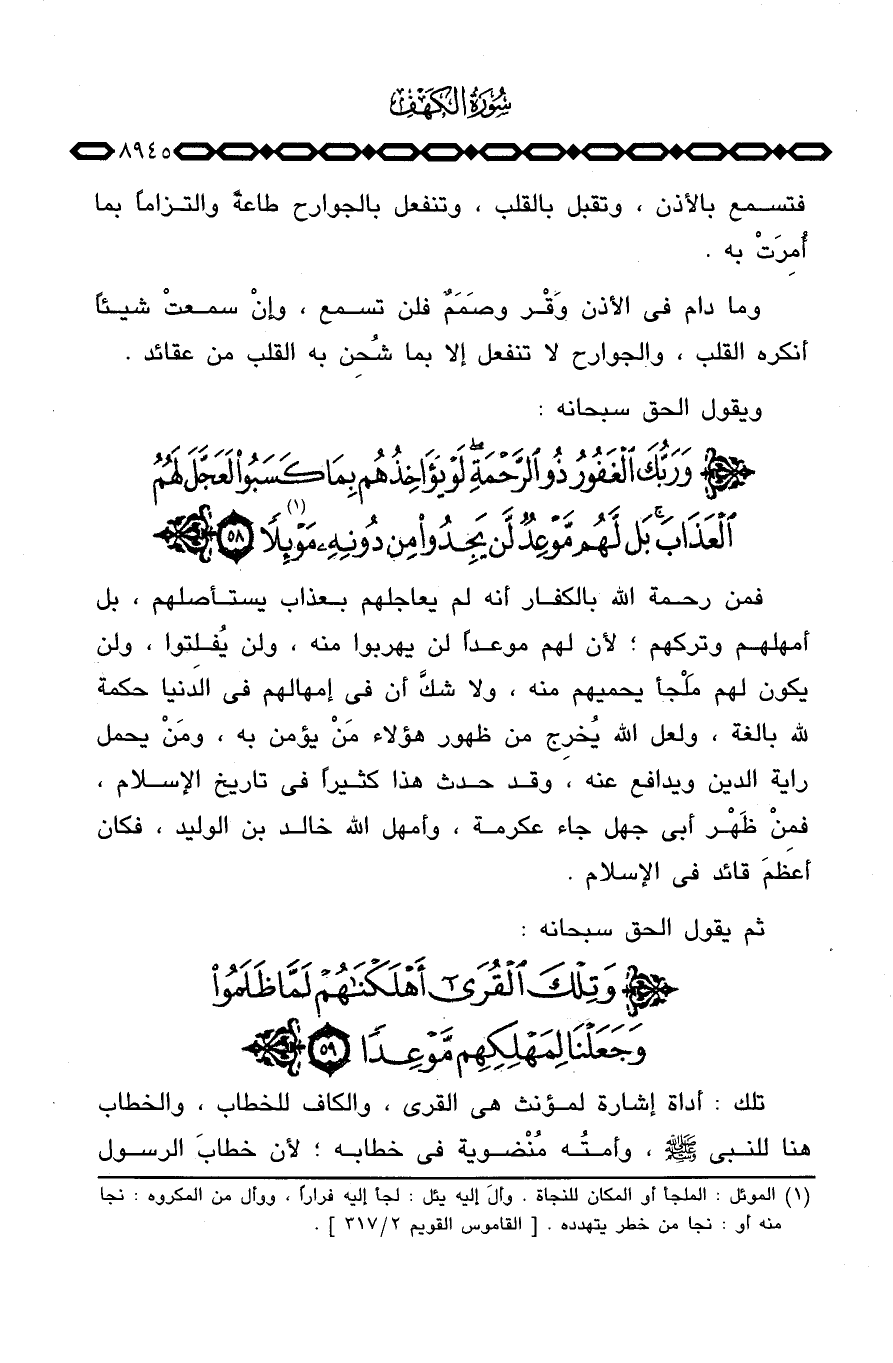 سُورَةُ الكَهْفِ
٨٩٤٥
فتسمع بالأذن ، وتقبل بالقلب ، وتنفعل بالجوارح طاعةً والتزاماً بما
أُمِرَتْ به .
وما دام فى الأذن وَقْر وصمَمٌ فلن تسمع ، وإنْ سمعتْ شيئاً
أنكره القلب ، والجوارح لا تنفعل إلا بما شُحِن به القلب من عقائد .
ويقول الحق سبحانه :
وَرَبُّكَ ٱلْغَفُورُ ذُو ٱلرَّحْمَةِۖ لَوْ يُؤَاخِذُهُم بِمَا كَسَبُوا۟ لَعَجَّلَ لَهُمُ
ٱلْعَذَابَۚ بَل لَّهُم مَّوْعِدٌ لَّن يَجِدُوا۟ مِن دُونِهِۦ مَوْئِلًا (١) ٥٨
فمن رحمة الله بالكفار أنه لم يعاجلهم بعذاب يستأصلهم ، بل
أمهلهم وتركهم ؛ لأن لهم موعداً لن يهربوا منه ، ولن يُفلِتوا ، ولن
يكون لهم ملْجأ يحميهم منه ، ولا شكَّ أن فى إمهالهم فى الدنيا حكمة
لله بالغة ، ولعل الله يُخرِج من ظهور هؤلاء مَنْ يؤمن به ، ومَنْ يحمل
راية الدين ويدافع عنه ، وقد حدث هذا كثيراً فى تاريخ الإسلام ،
فمِنْ ظَهْر أبى جهل جاء عكرمة ، وأمهل الله خالد بن الوليد ، فكان
أعظمَ قائد فى الإسلام .
ثم يقول الحق سبحانه :
وَتِلْكَ ٱلْقُرَىٰٓ أَهْلَكْنَـٰهُمْ لَمَّا ظَلَمُوا۟
وَجَعَلْنَا لِمَهْلِكِهِم مَّوْعِدًا ٥٩
تلك : أداة إشارة لمؤنث هى القرى ، والكاف للخطاب ، والخطاب
هنا للنبى ﷺ ، وأمتُه مُنْضوية فى خطابه ؛ لأن خطابَ الرسول
(١) الموئل : الملجأ أو المكان للنجاة . وأل إليه يئل : لجأ إليه فراراً ، ووأل من المكروه : نجا
منه أو : نجا من خطر يتهدده . [ القاموس القويم ٣١٧/٢ ] .